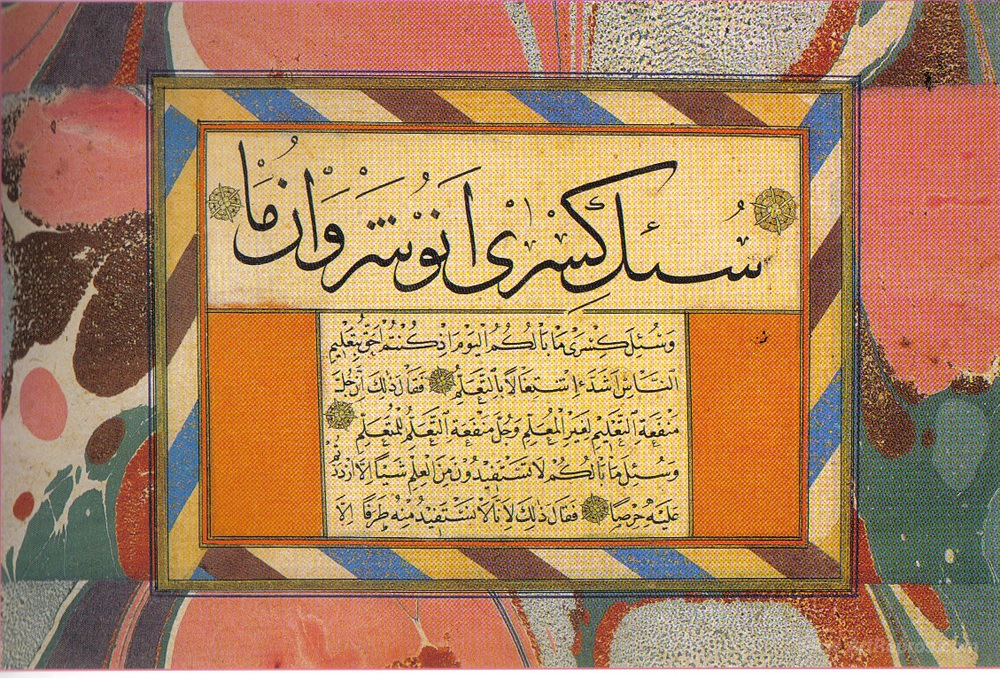 سُئِلَ كِسْرَى اَنُوشَرْوَانُ مَا
وَسُئِلَ كِسْرَى مَا بَالُكُمُ الْيَوْمَ اِذْ كُنْتُمْ اَحَقَّ بِتَعْلِيمِ
النَّاسِ اَشَدَّ اِشْتِغَالًا بِالتَّعَلُّمِ فَقَالَ ذٰلِكَ لِاَنَّ جُلَّ
مَنْفَعَةِ التَّعْلِيْمِ لِغَيْرِ الْمُعَلِّمِ وَجُلَّ مَنْفَعَةِ التَّعَلُّمِ لِلْمُتَعَلِّمِ
وَسُئِلَ مَا بَالُكُمْ لَا تَسْتَفِيْدُوْنَ مِنَ الْعِلْمِ شَيْأً اِلَّا ازْدَدْتُمْ
عَلَيْهِ حِرْصًا فَقَالَ ذٰلِكَ لِاَنَّا لَا نَسْتَفِيْدُ مِنْهُ طَرَفًا اِلَّا